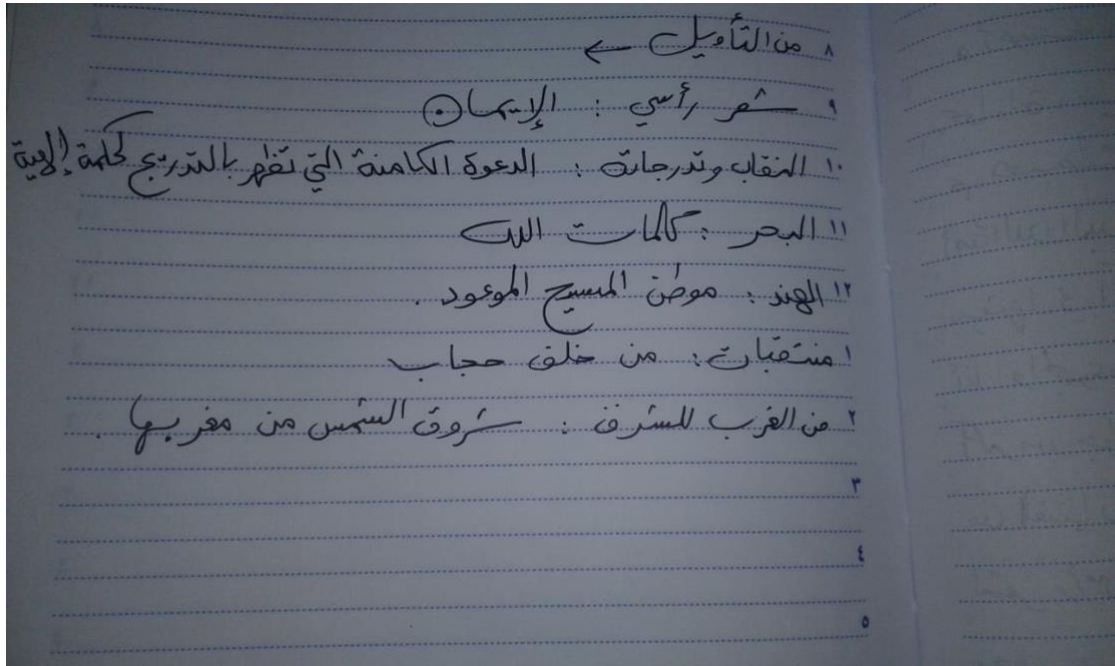 ٨ من التأويل ←
٩ شعر رأسي : الإيمان
١٠ النقاب وتدرجاته : الدعوة الكامنة التي تظهر بالتدريج كلمة إلهية
١١ البحر : كلمات الله
١٢ الهند : موطن المسيح الموعود .
١ منتقبات : من خلف حجاب
٢ من الغرب للشرق : شروق الشمس من مغربها .
٣
٤
٥